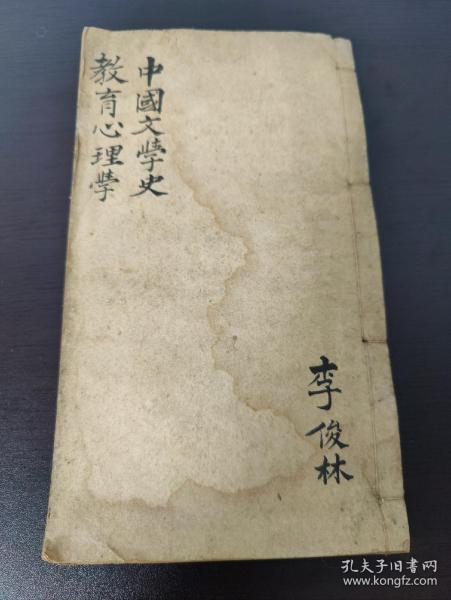 中國文學史
教育心理學
李俊林
孔夫子旧书网
www.kongfz.com